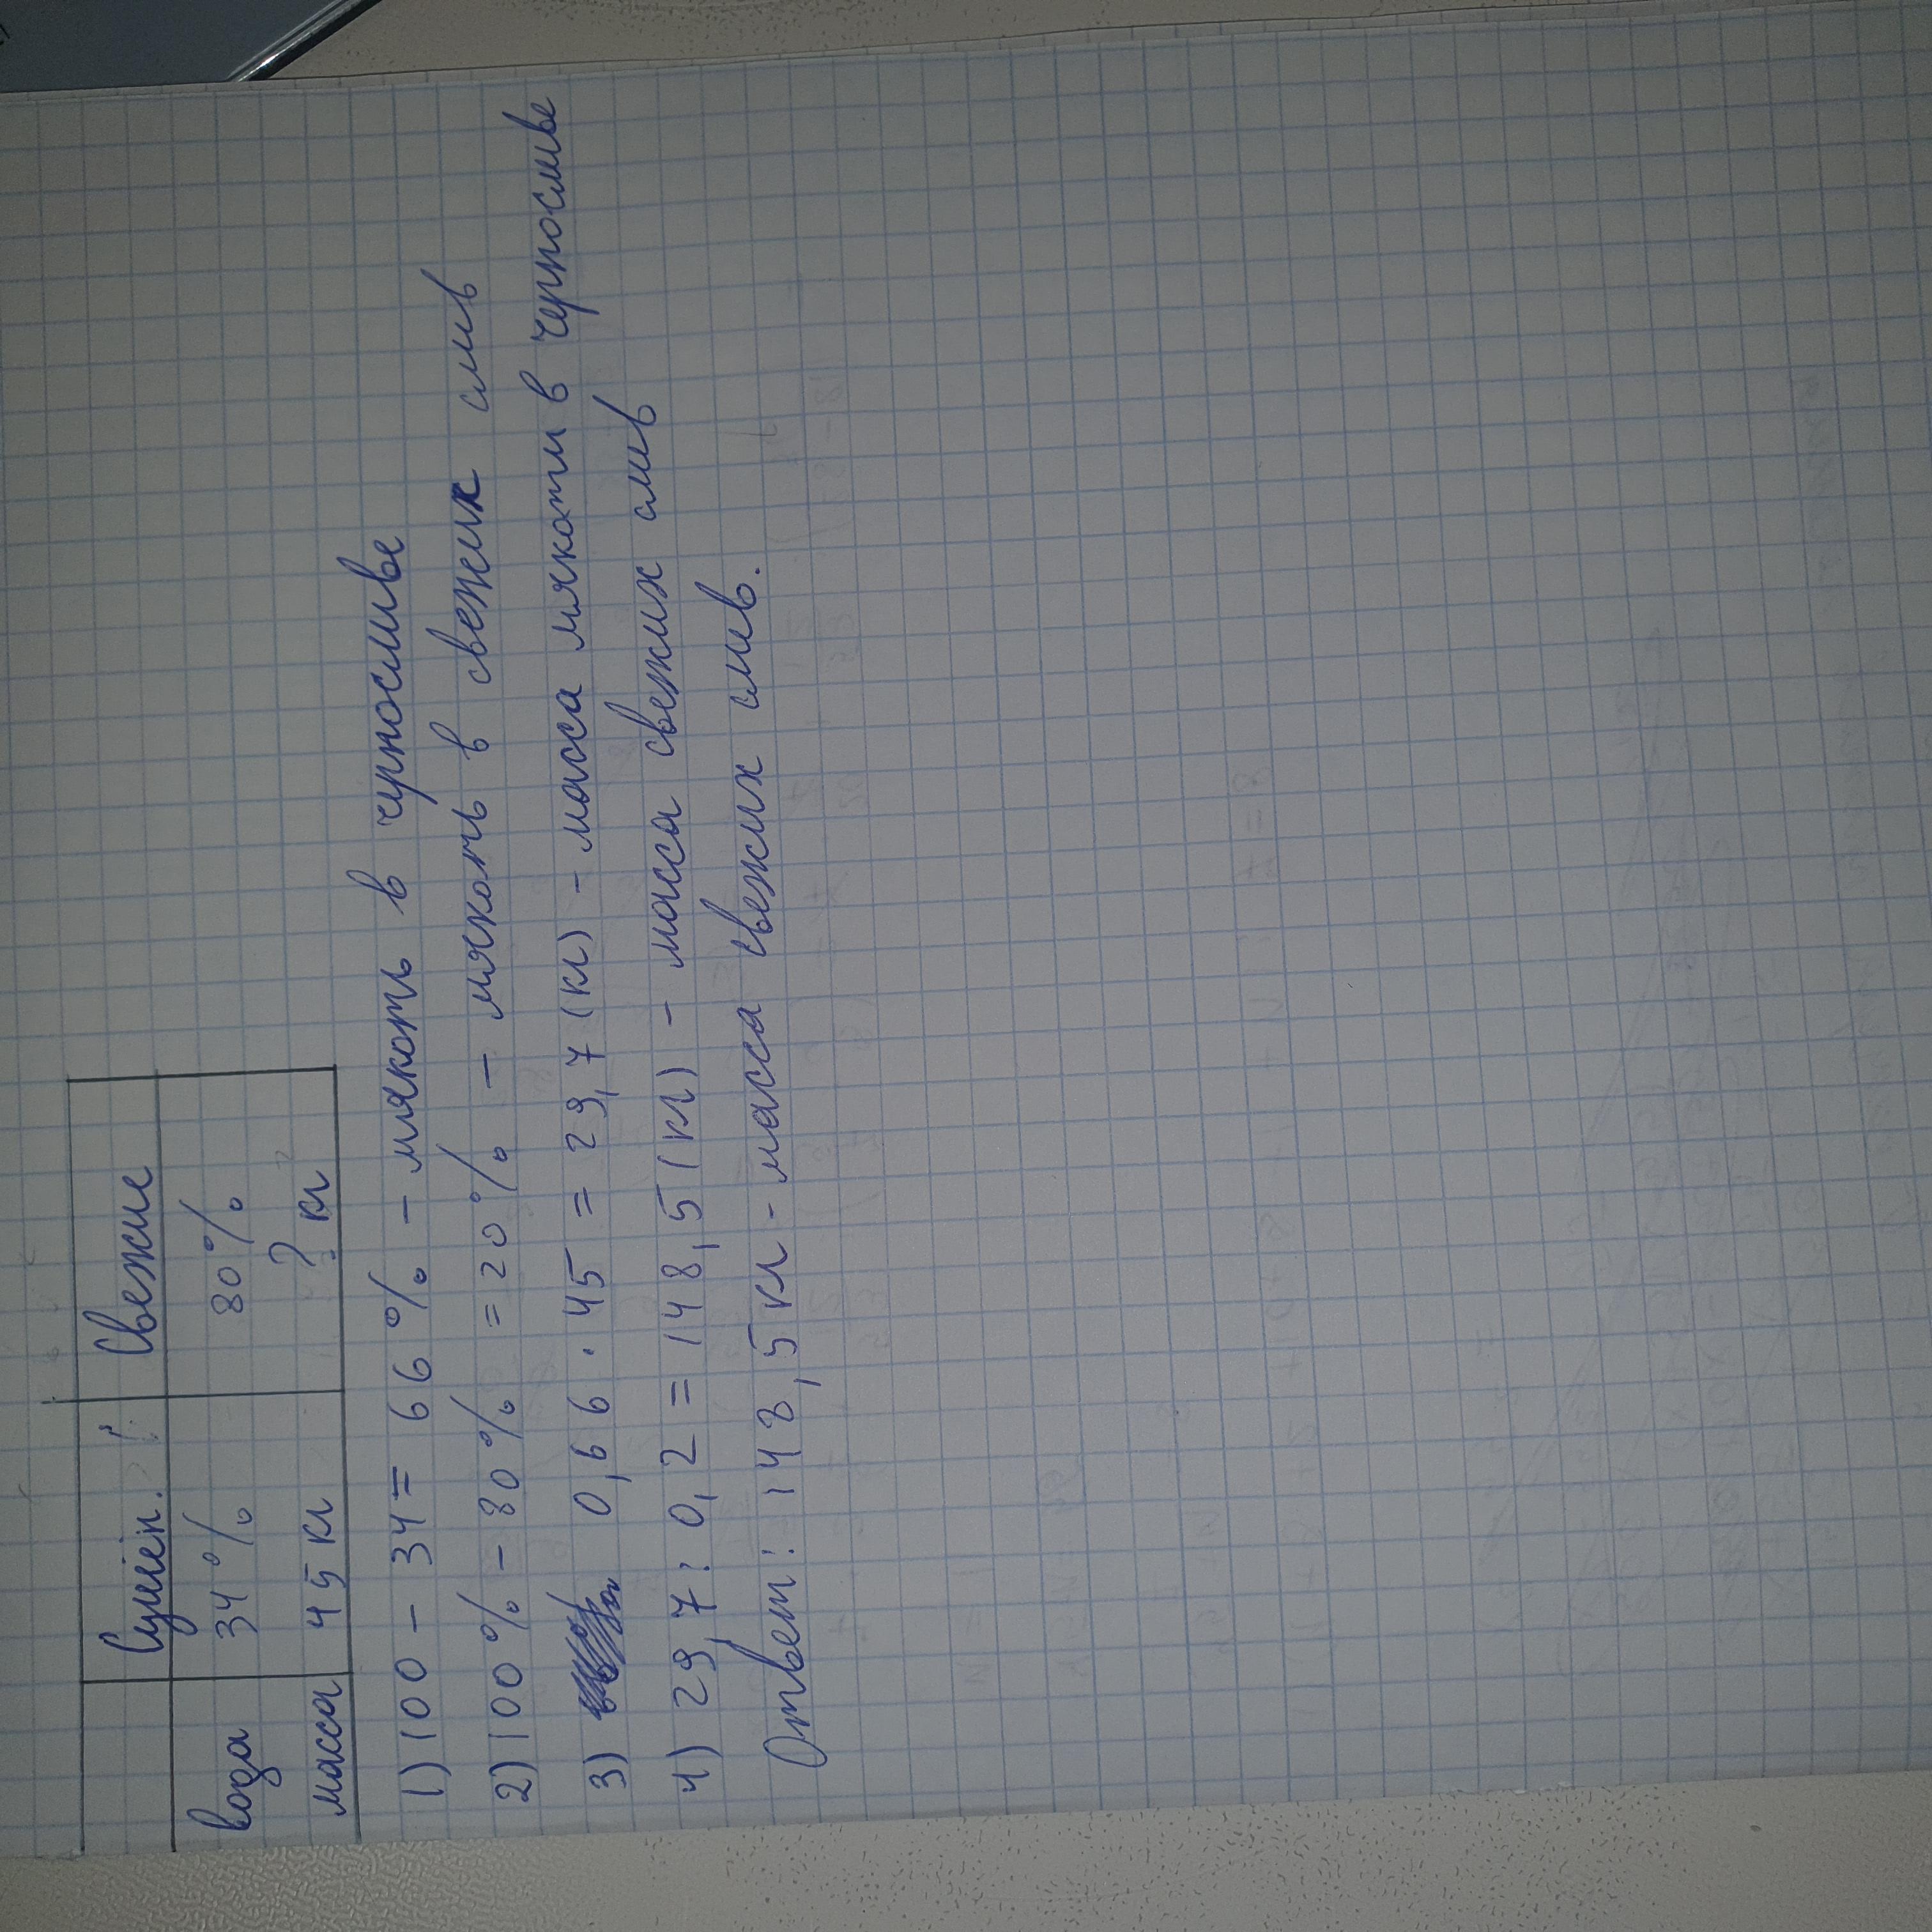 Сушён. Свежие
вода 34% 80%
масса 45 кг ? кг
1) 100 - 34 = 66% - мякоть в черносливе
2) 100% - 80% = 20% - мякоть в свежих слив
3) 0,66 · 45 = 29,7 (кг) - масса мякоти в черносливе
4) 29,7 : 0,2 = 148,5 (кг) - масса свежих слив
Ответ: 148,5 кг - масса свежих слив.